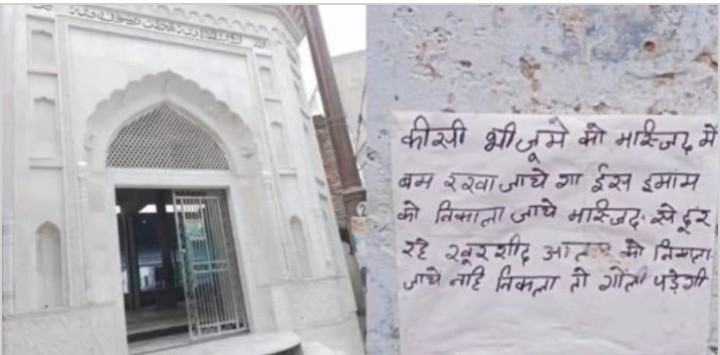 कीसी भी जूमे को मास्जिद में
बम रखा जाये गा ईस इमाम
को निकाला जाये मास्जिद से दूर
रहे खुरशीद को
जाये नहि निकला तो गोली पड़ेगी